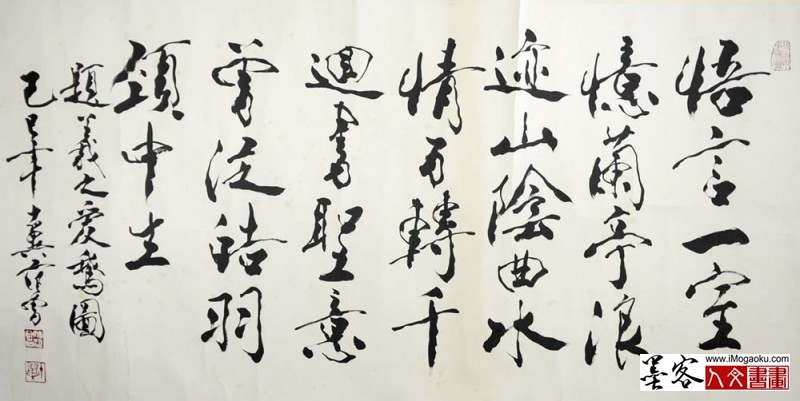 悟言一室
憶蘭亭浪
迹山陰曲水
情百轉千
迴書聖意
曾從皓羽
中生
題羲之愛鵝圖
己巳年十翼范曾
墨客
www.iMogaoku.com
人文書畫